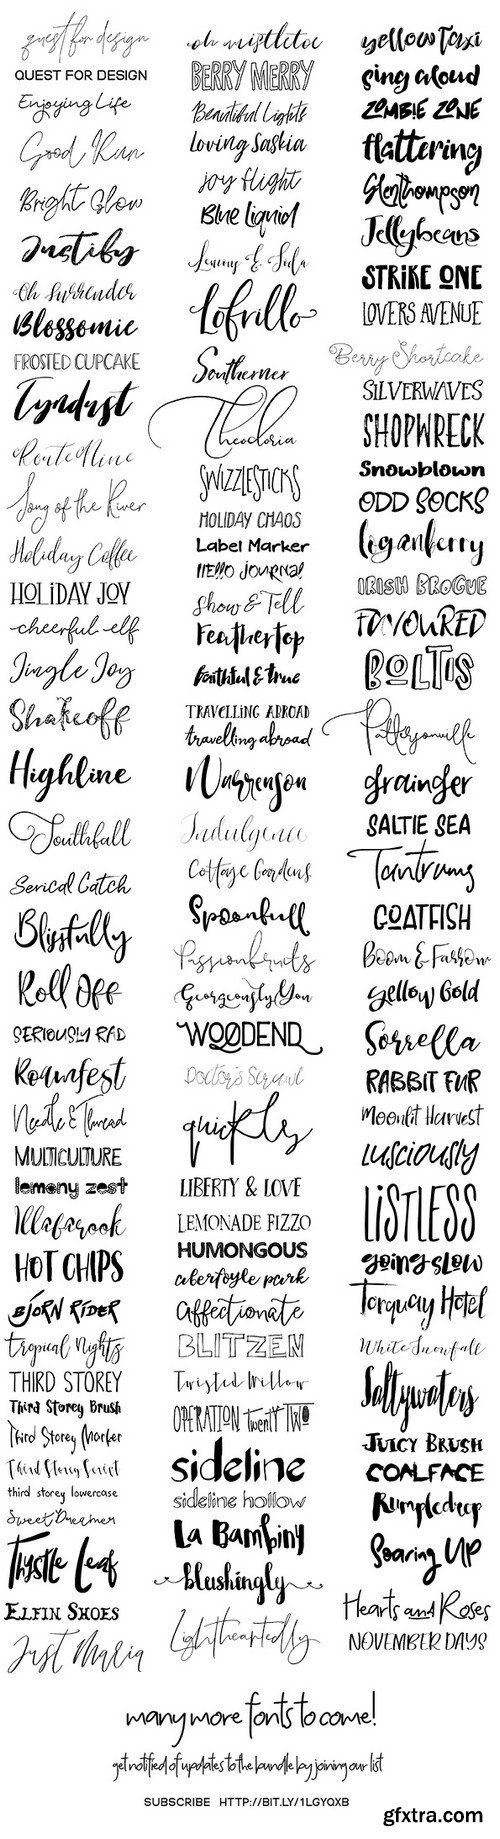 quest for design
QUEST FOR DESIGN
Enjoying Life
Good Run
Bright Glow
Justify
Oh Surrender
Blossomie
FROSTED CUPCAKE
Tyndust
Route Nine
Song of the River
Holiday Coffee
HOLIDAY JOY
cheerful elf
Jingle Joy
Shakeoff
Highline
Southfall
Serical Catch
Blissfully
Roll Off
SERIOUSLY RAD
Roamfest
Needle & Thread
MULTICULTURE
lemony zest
Illabarook
HOT CHIPS
BJORN RIDER
Tropical Nights
THIRD STOREY
Third Storey Brush
Third Storey Marker
Third Storey Script
third storey lowercase
Sweet Dreamer
Thystle Leaf
ELFIN SHOES
Just Maria
oh mistletoe
BERRY MERRY
Beautiful Lights
Loving Saskia
joy flight
Blue Liquid
Lemons & Soda
Lofrillo
Southerner
Theodoria
SWIZZLESTICKS
HOLIDAY CHAOS
Label Marker
HELLO JOURNAL
Show & Tell
Feathertop
Faithful & true
TRAVELLING ABROAD
travelling abroad
Warrenson
Indulgence
Cottage Gardens
Spoonfull
Passionfruits
Georgeously You
WOODEND
Doctor's Scrawl
quickly
LIBERTY & LOVE
LEMONADE FIZZO
HUMONGOUS
aberfoyle park
Affectionate
BLITZEN
Twisted Willow
OPERATION TWENTY TWO
sideline
sideline hollow
La Bambiny
blushingly
Lightheartedly
yellow Taxi
sing aloud
ZOMBIE ZONE
flattering
Glenthompson
Jellybeans
STRIKE ONE
LOVERS AVENUE
Berry Shortcake
SILVERWAVES
SHOPWRECK
Snowblown
ODD SOCKS
loganberry
IRISH BROGUE
FAVOURED
BOLTIS
Pattersonville
grainger
SALTIE SEA
Tantrums
GOATFISH
Boom & Farrow
yellow Gold
Sorrella
RABBIT FUR
Moonlit Harvest
LUSCIOUSLY
LISTLESS
going slow
Torquay Hotel
White Snowfall
Saltywaters
JUICY BRUSH
COALFACE
Rumpledrop
Soaring UP
Hearts and Roses
NOVEMBER DAYS
many more fonts to come!
get notified of updates to the bundle by joining our list
SUBSCRIBE HTTP://BIT.LY/1LGYQXB
gfxtra.com